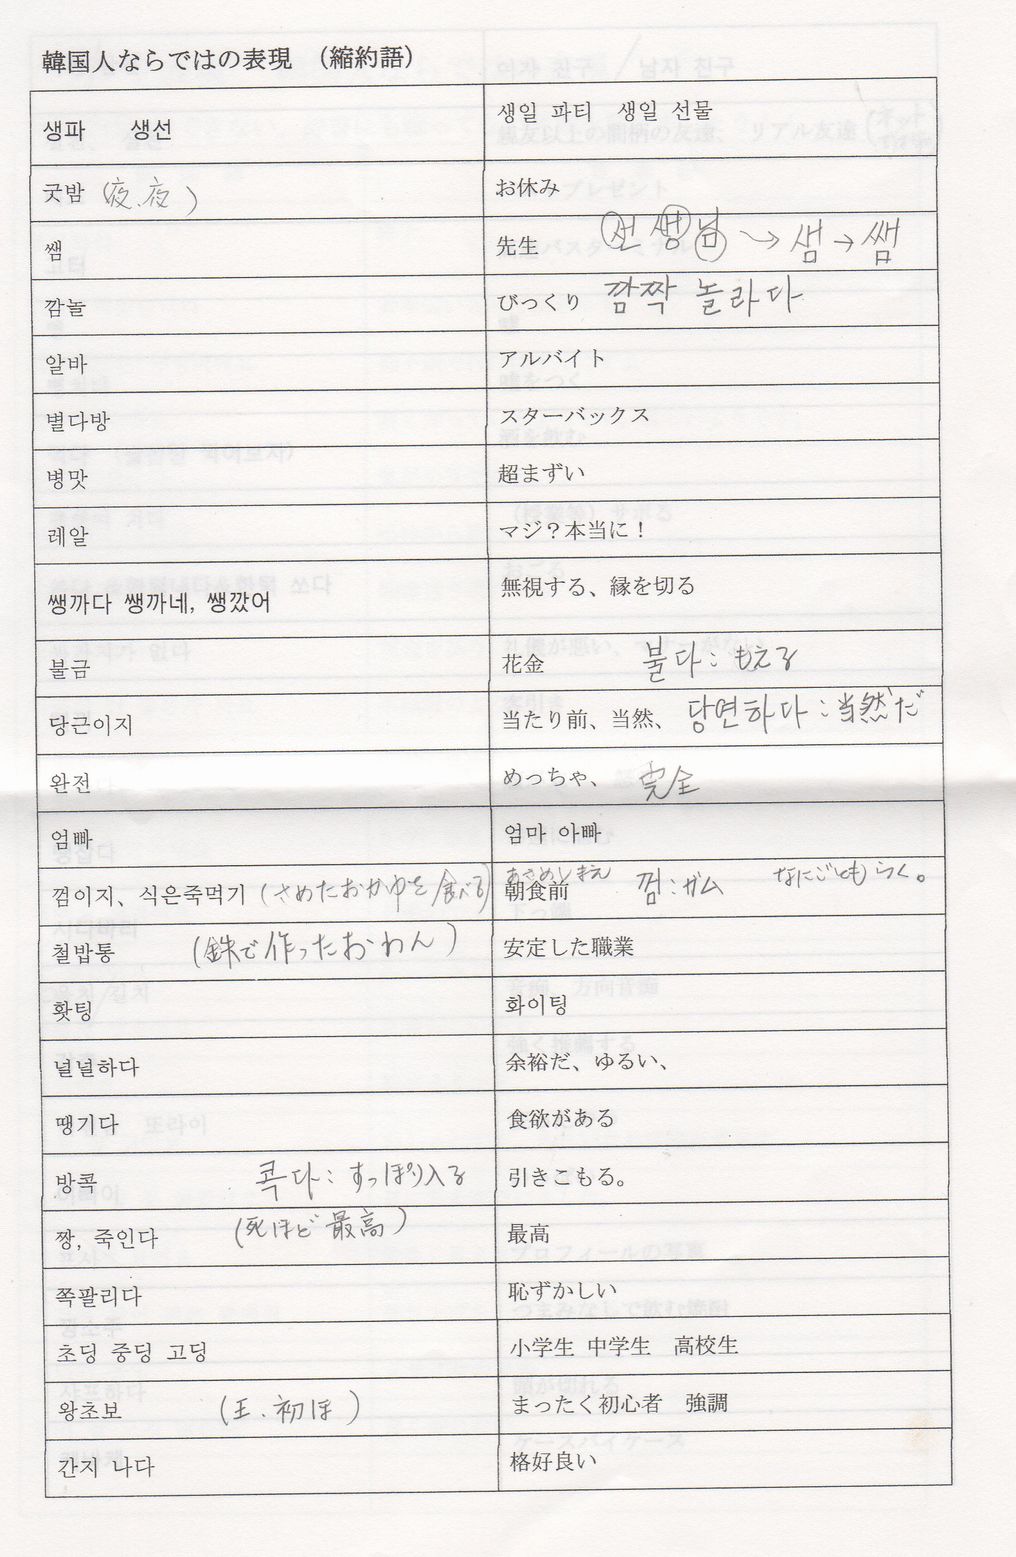 韓国人ならではの表現　（縮約語）
생파　생선　생일 파티　생일 선물
굿밤 (夜、夜)　お休み
쌤　先生　선생님 → 샘 → 쌤
깜놀　びっくり　깜짝 놀라다
알바　アルバイト
별다방　スターバックス
병맛　超まずい
레알　マジ？本当に！
쌩까다 쌩까네, 쌩깠어　無視する、縁を切る
불금　花金　불다：もえる
당근이지　当たり前、当然、 당연하다：当然だ
완전　めっちゃ、 完全
엄빠　엄마 아빠
껌이지、식은죽먹기 (さめたおかゆを食べる)　朝食前　あさめしまえ　껌：ガム　なにごともらく。
철밥통　(鉄で作ったおわん)　安定した職業
홧팅　화이팅
널널하다　余裕だ、ゆるい、
땡기다　食欲がある
방콕　콕다：すっぽり入る　引きこもる。
짱, 죽인다　(死ほど最高)　最高
쪽팔리다　恥ずかしい
초딩 중딩 고딩　小学生 中学生　高校生
왕초보　(王、初ほ)　まったく初心者　強調
간지 나다　格好良い